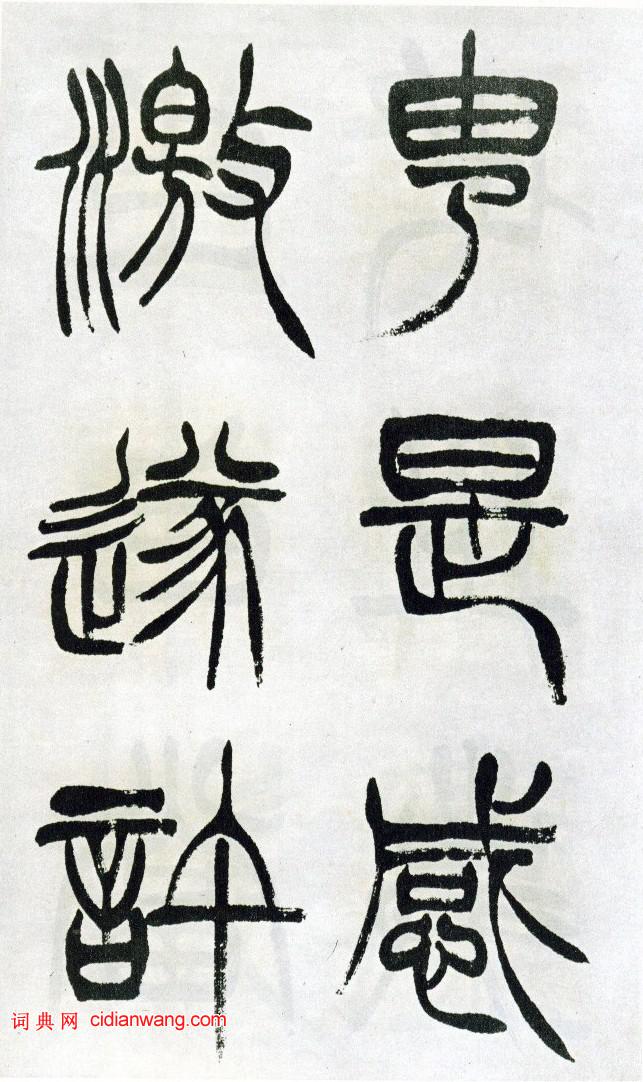 由是感
激遂許
词典网 cidianwang.com